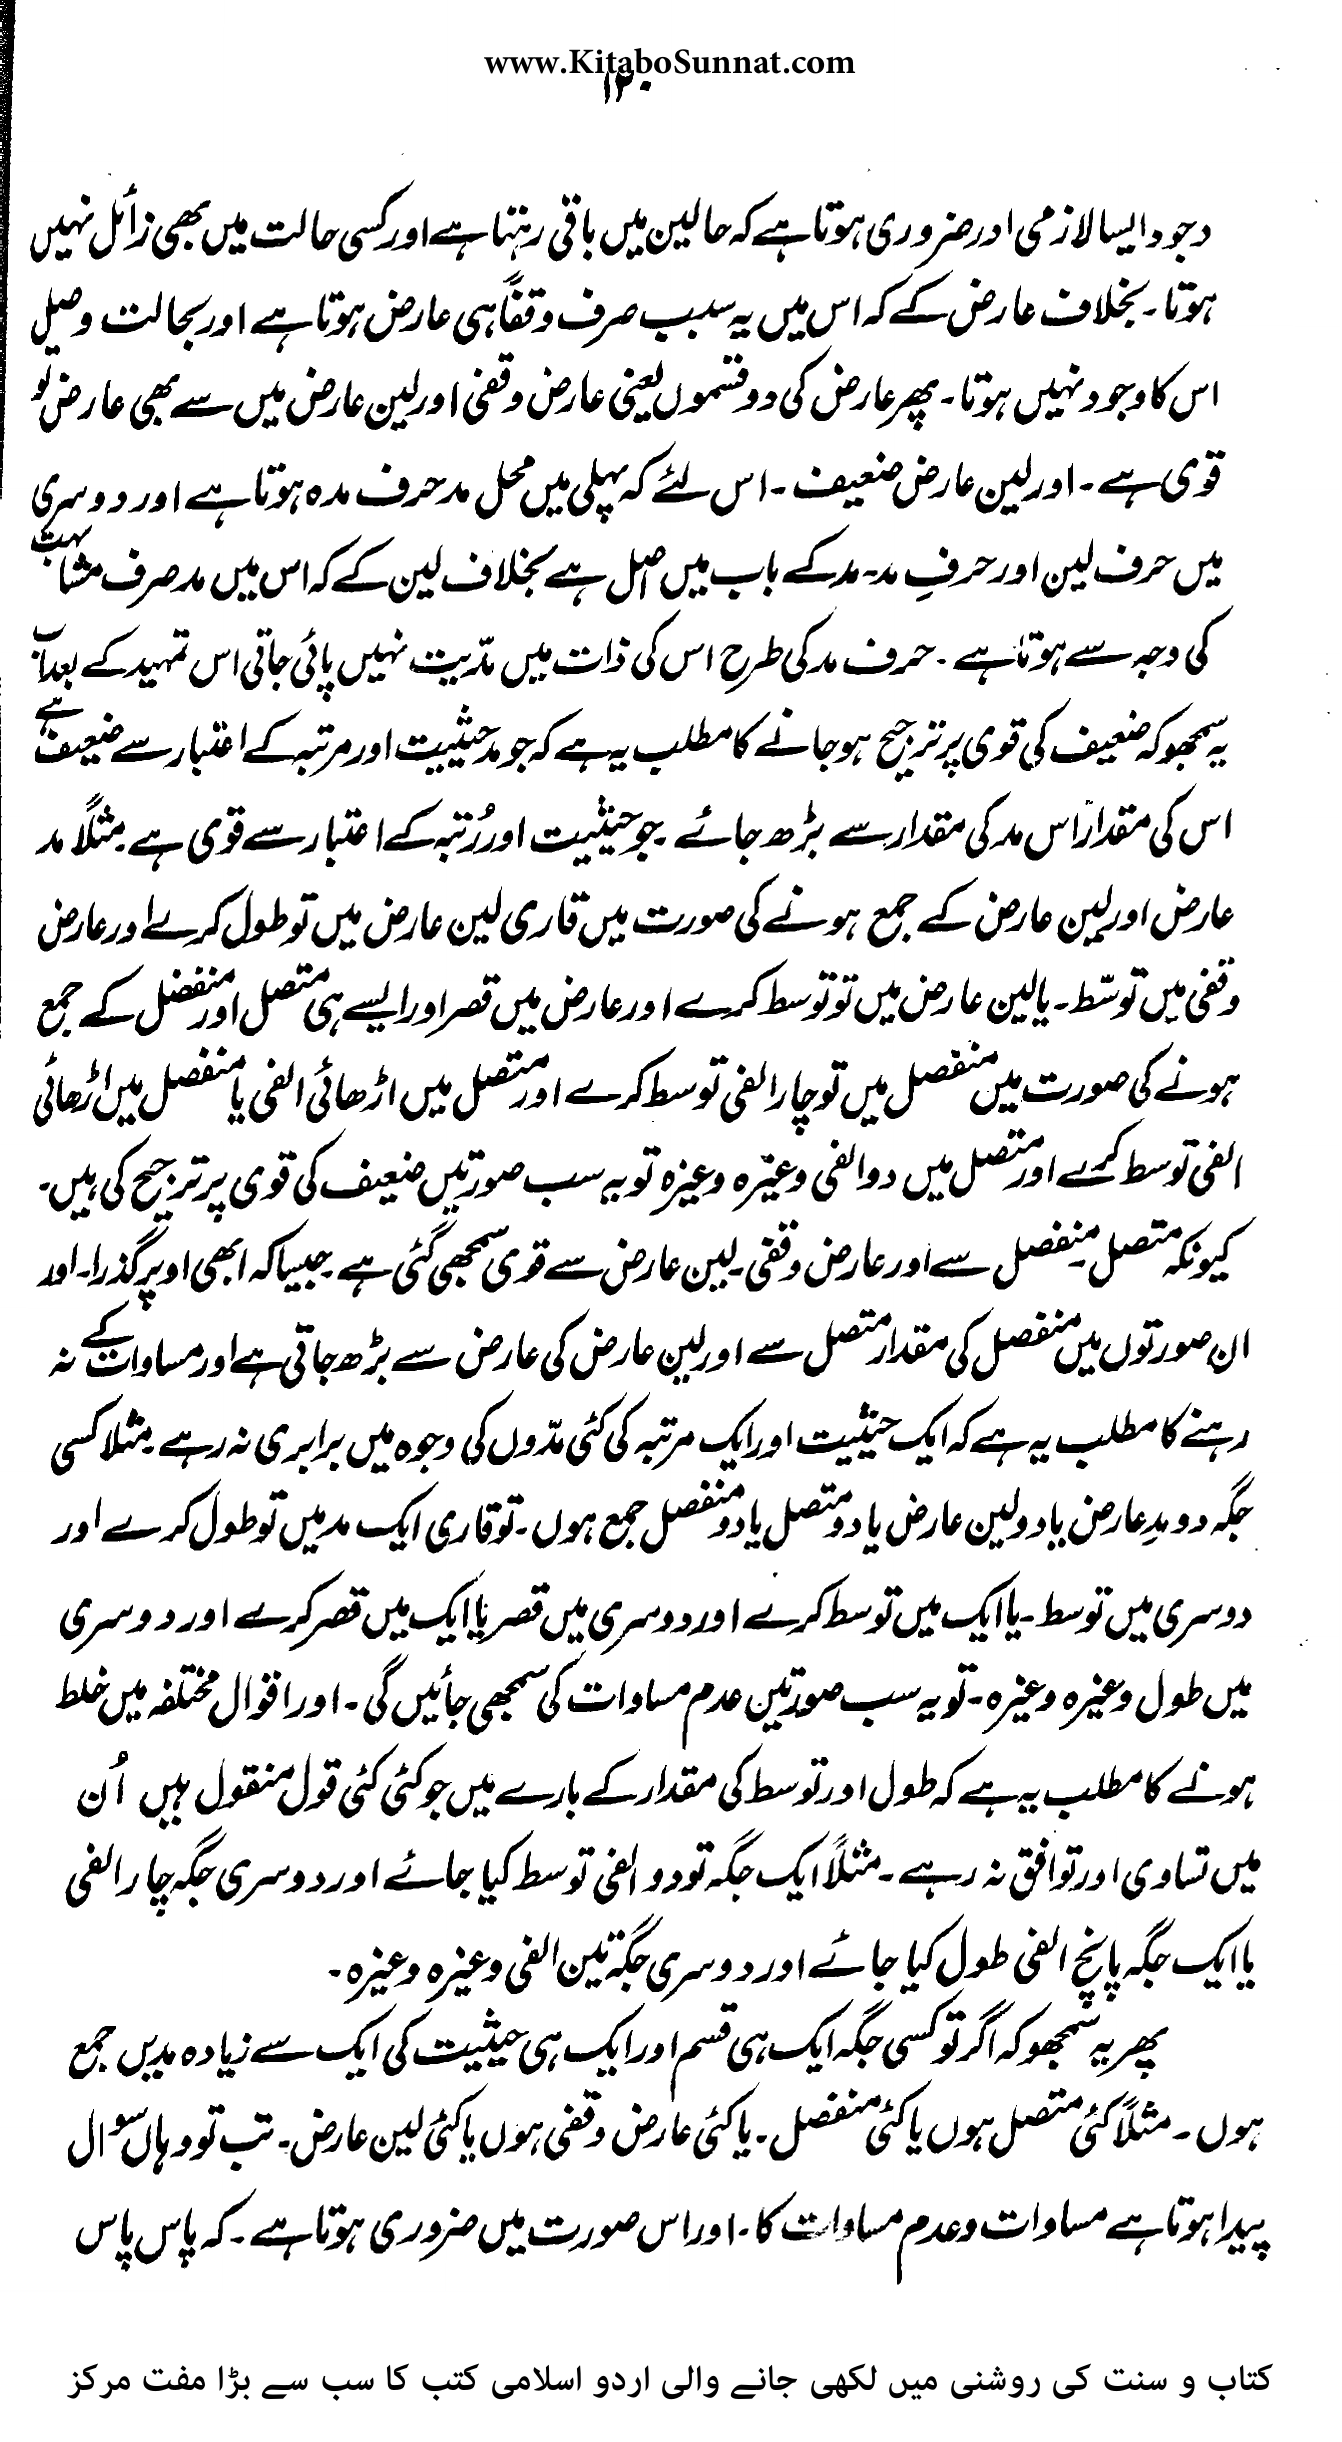 www.KitaboSunnat.com
۱۳۰
وجود ایسا لازمی اور ضروری ہوتا ہے کہ حالین میں باقی رہتا ہے اور کسی حالت میں بھی زائل نہیں
ہوتا۔ بخلاف عارض کے کہ اس میں یہ سبب صرف وقفًا ہی عارض ہوتا ہے اور بحالت وصل
اس کا وجود نہیں ہوتا۔ پھر عارض کی دو قسموں یعنی عارض وقفی اور لین عارض میں سے بھی عارض تو
قوی ہے۔ اور لین عارض ضعیف۔ اس لئے کہ پہلی میں محل مد حرف مدہ ہوتا ہے اور دوسری
میں حرف لین اور حرفِ مد۔ مد کے باب میں اصل ہے بخلاف لین کے کہ اس میں مد صرف مشابہت
کی وجہ سے ہوتا ہے۔ حرف مد کی طرح اس کی ذات میں مدّیت نہیں پائی جاتی اس تمہید کے بعد اب
یہ سمجھو کہ ضعیف کی قوی پر ترجیح ہو جانے کا مطلب یہ ہے کہ جو مد حیثیت اور مرتبہ کے اعتبار سے ضعیف ہے
اس کی مقدار اس مد کی مقدار سے بڑھ جائے۔ جو حیثیت اور رُتبہ کے اعتبار سے قوی ہے۔ مثلاً مد
عارض اور لین عارض کے جمع ہونے کی صورت میں قاری لین عارض میں تو طول کرے اور عارض
وقفی میں توسّط۔ یا لین عارض میں تو توسط کرے اور عارض میں قصر اور ایسے ہی متصل اور منفصل کے جمع
ہونے کی صورت میں منفصل میں تو چار الفی توسط کرے اور متصل میں اڑھائی الفی یا منفصل میں اڑھائی
الفی توسط کرے اور متصل میں دو الفی وغیرہ وغیرہ تو یہ سب صورتیں ضعیف کی قوی پر ترجیح کی ہیں۔
کیونکہ متصل۔ منفصل سے اور عارض وقفی۔ لین عارض سے قوی سمجھی گئی ہے۔ جیسا کہ ابھی اوپر گذرا۔ اور
ان صورتوں میں منفصل کی مقدار متصل سے اور لین عارض کی عارض سے بڑھ جاتی ہے اور مساوات کے نہ
رہنے کا مطلب یہ ہے کہ ایک حیثیت اور ایک مرتبہ کی کئی مدّوں کی وجوہ میں برابری نہ رہے۔ مثلا کسی
جگہ دو مدِ عارض یا دو لین عارض یا دو متصل یا دو منفصل جمع ہوں۔ تو قاری ایک مد میں تو طول کرے اور
دوسری میں توسط۔ یا ایک میں توسط کرے اور دوسری میں قصر یا ایک میں قصر کرے اور دوسری
میں طول وغیرہ وغیرہ۔ تو یہ سب صورتیں عدم مساوات کی سمجھی جائیں گی۔ اور اقوال مختلفہ میں خلط
ہونے کا مطلب یہ ہے کہ طول اور توسط کی مقدار کے بارے میں جو کئی کئی قول منقول ہیں اُن
میں تساوی اور توافق نہ رہے۔ مثلاً ایک جگہ تو دو الفی توسط کیا جائے اور دوسری جگہ چار الفی
یا ایک جگہ پانچ الفی طول کیا جائے اور دوسری جگہ تین الفی وغیرہ وغیرہ۔
پھر یہ سمجھو کہ اگر تو کسی جگہ ایک ہی قسم اور ایک ہی حیثیت کی ایک سے زیادہ مدیں جمع
ہوں۔ مثلاً کئی متصل ہوں یا کئی منفصل۔ یا کئی عارض وقفی ہوں یا کئی لین عارض۔ تب تو وہاں سوال
پیدا ہوتا ہے مساوات و عدم مساوات کا۔ اور اس صورت میں ضروری ہوتا ہے۔ کہ پاس پاس
کتاب و سنت کی روشنی میں لکھی جانے والی اردو اسلامی کتب کا سب سے بڑا مفت مرکز